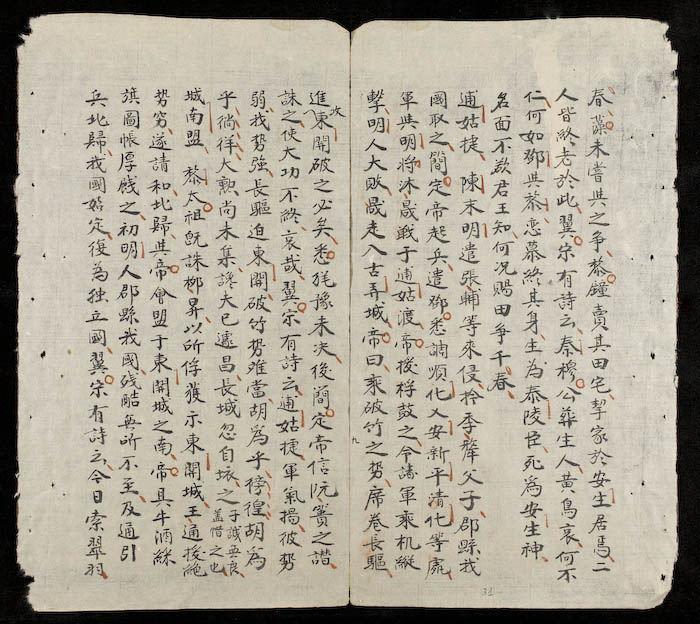 春藻未嘗與之争黎鐘賣其田宅挈家於安生居焉二
人皆終老於此翼宗有詩云秦穆公葬生人黃鳥哀何不
仁何如鄧與黎恋慕終其身生為泰陵臣死為安生神
名面不欲君王知何况賜田争千春
逋姑捷 陳末明遣張輔等來侵擒季犛父子郡縣我
國取之簡定帝起兵遣鄧悉調順化乂安新平清化等處
軍與明將沐晟戰于逋姑渡帝援桴鼓之令諸軍乘机縱
擊明人大敗晟走入古弄城帝曰乘破竹之势席卷長驅
九
31
進攻東關破之必矣悉犹豫未决後簡定帝信阮簣之譖
誅之使大功不終哀哉翼宗有詩云逋姑捷軍氣揚彼势
弱我势強長驅迫東關破竹势难當胡為乎徬徨胡為
乎徜徉大勲尚未集讒夫已遽昌長城忽自坏之子誠無良盖惜之也
城南盟 黎太祖既誅柳昇以所俘獲示東關城王通援絕
势穷遂請和北歸與帝會盟于東關城之南帝具牛酒綵
旗圖帳厚餞之初明人郡縣我國残酷無所不至及通引
兵北歸我國始定復為独立國翼宗有詩云今日索翠羽